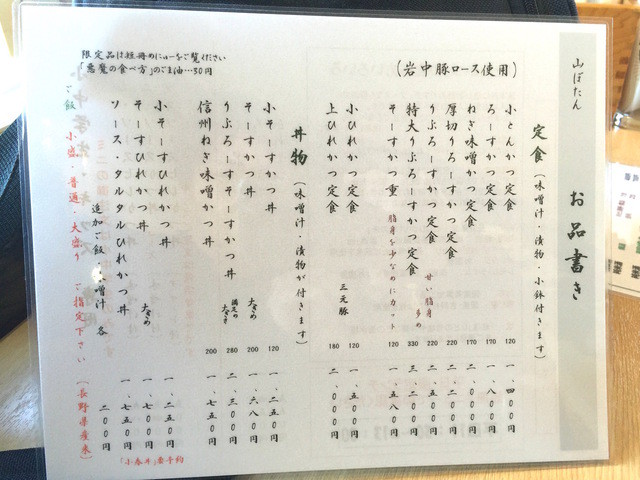 山ぼたん
お品書き
定食(味噌汁・漬物・小鉢付きます)
小とんかつ定食 120 一、四〇〇円
ろーすかつ定食 120 一、八〇〇円
ねぎ味噌かつ定食 170 二、〇〇〇円
厚切りろーすかつ定食 220
りぶろーすかつ定食 甘い脂身 220
特大りろーすかつ定食 多め 330
そーすかつ重 脂身を少なめにカット 120 一、五八〇円
(岩中豚ロース使用)
小ひれかつ定食 三元豚 120 一、五〇〇円
上ひれかつ定食 180 二、〇〇〇円
丼物(味噌汁・漬物が付きます)
小そーすかつ丼 120 一、二五〇円
そーすかつ丼 大きめ 200 一、六八〇円
りぶろーすそーすかつ丼 満足の大きさ 280 二、三〇〇円
信州ねぎ味噌かつ丼 200 一、七五〇円
限定品は短冊めにゅーをご覧ください
「悪魔の食べ方」のごま油…30円
小そーすひれかつ丼 一、二五〇円
そーすひれかつ丼 大きめ 一、七〇〇円
ソース・タルタルひれかつ丼 一、七五〇円
追加ご飯・味噌汁 各 二〇〇円
ご飯 小盛・普通・大盛り ご指定下さい(長野県産米)